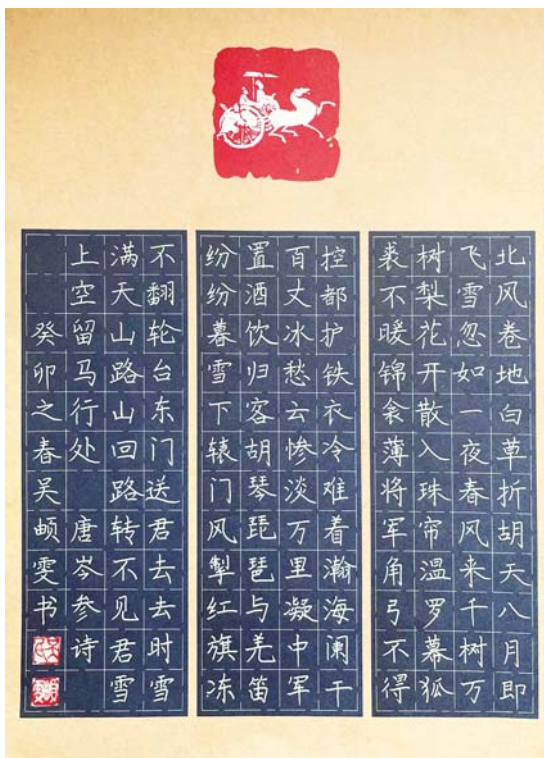 北风卷地白草折胡天八月即
飞雪忽如一夜春风来千树万
树梨花开散入珠帘温罗幕狐
裘不暖锦衾薄将军角弓不得
控都护铁衣冷难着瀚海阑干
百丈冰愁云惨淡万里凝中军
置酒饮归客胡琴琵琶与羌笛
纷纷暮雪下辕门风掣红旗冻
不翻轮台东门送君去去时雪
满天山路山回路转不见君雪
上空留马行处 唐岑参诗
癸卯之春吴雯书